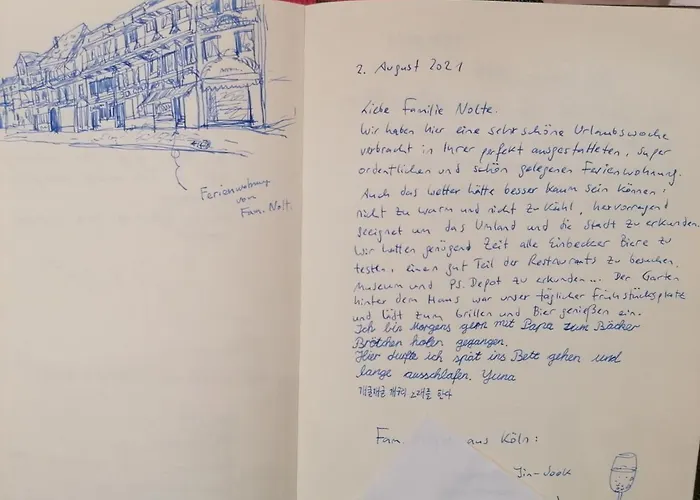 Ferienwohnung
von
Fam. Nolt.
2. August 2021
Liebe Familie Nolte.
Wir haben hier eine sehr schöne Urlaubswoche
verbracht in Ihrer perfekt ausgestatteten, super
ordentlichen und schön gelegenen Ferienwohnung.
Auch das Wetter hätte besser kaum sein können,
nicht zu warm und nicht zu kühl, hervorragend
geeignet um das Umland und die Stadt zu erkunden.
Wir hatten genügend Zeit alle Einbecker Biere zu
testen, einen gut Teil der Restaurants zu besuchen,
Museum und PS. Depot zu erkunden... Der Garten
hinter dem Haus war unser täglicher Frühstücksplatz
und lädt zum Grillen und Bier genießen ein.
Ich bin Morgens gern mit Papa zum Bäcker
Brötchen holen gegangen.
Hier dufte ich spät ins Bett gehen und
lange ausschlafen. Yuna
개굴개굴 개구리 노래를 한다
Fam. aus Köln:
Jin-Sook